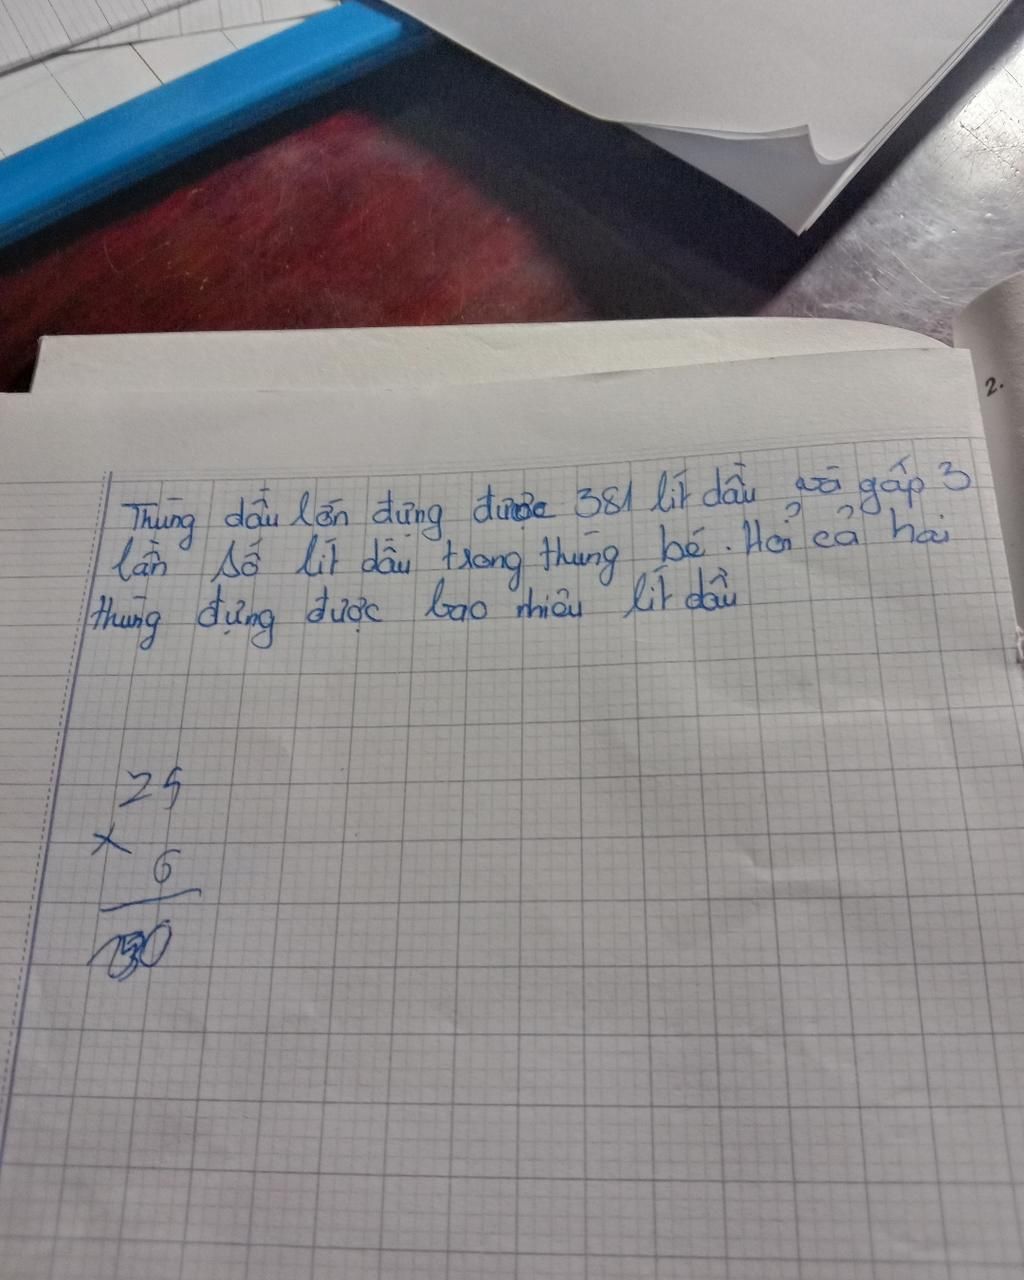 2.
Thùng dầu lớn đựng được 381 lít dầu và gấp 3
lần số lít dầu trong thùng bé. Hỏi cả hai
thùng đựng được bao nhiêu lít dầu
25
×
6
150